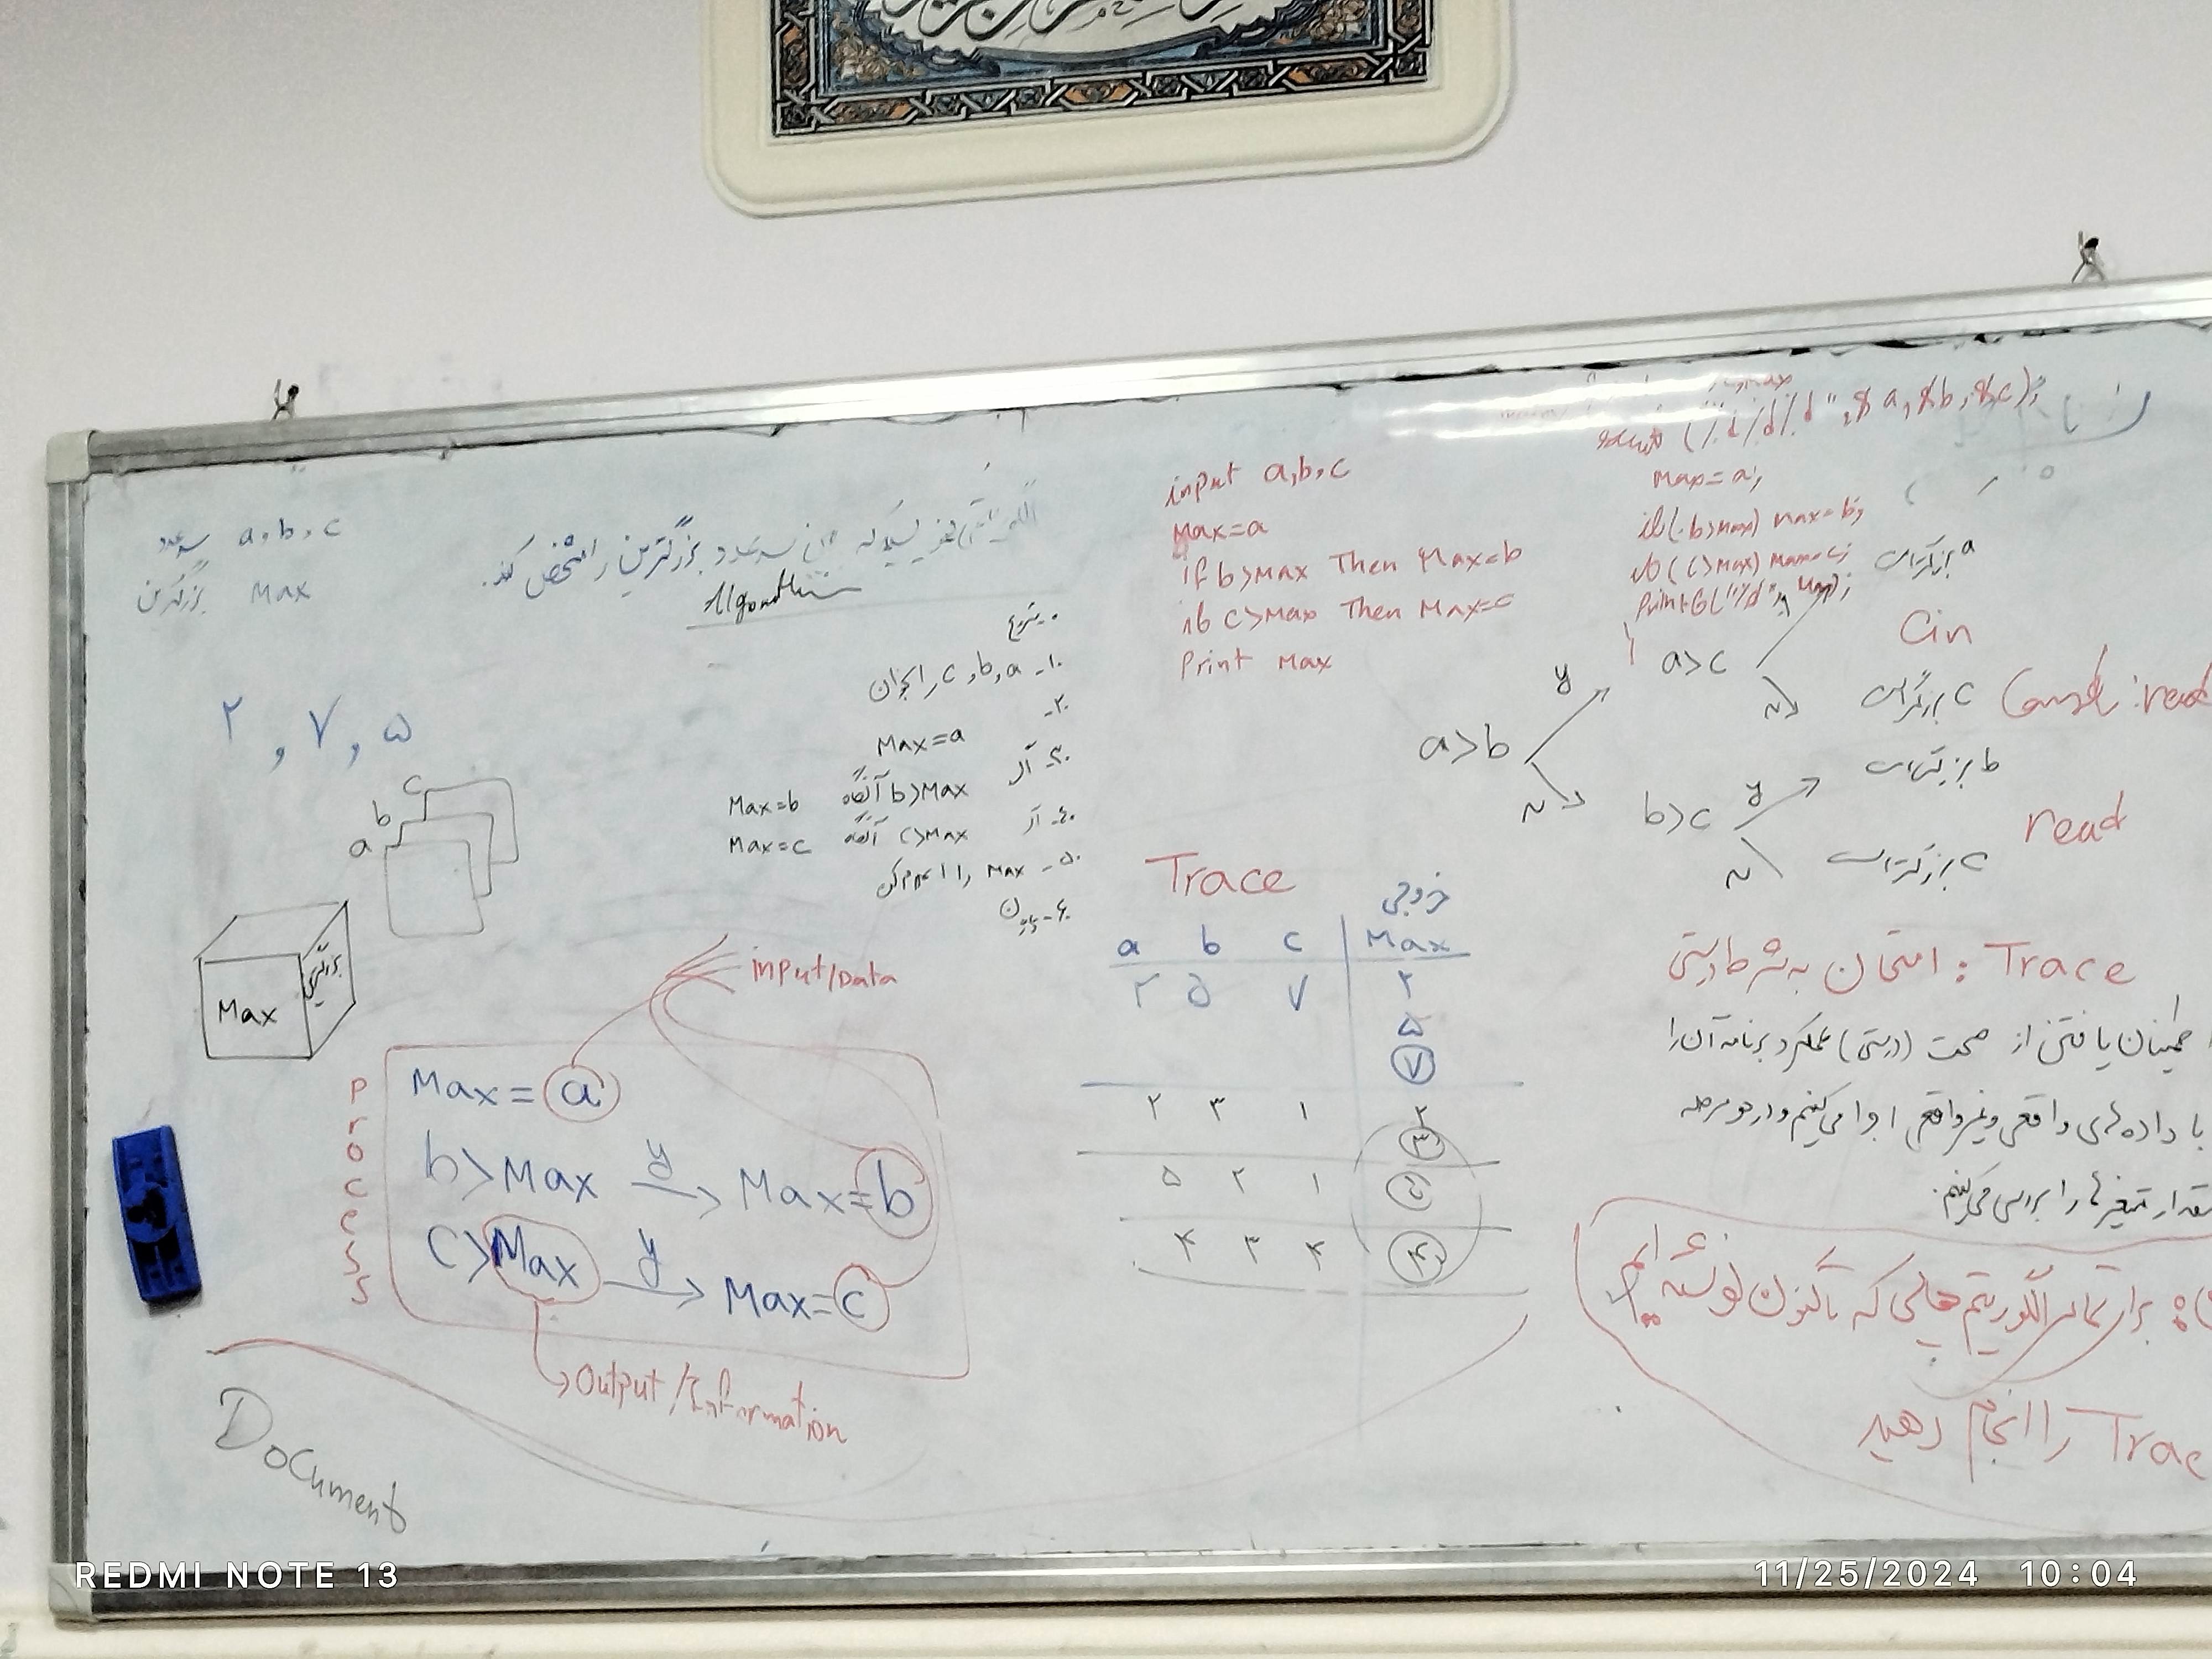 سه عدد a,b,c
بزرگترین Max
الگوریتمی بنویسید که از بین سه عدد بزرگترین را مشخص کند.
Algorithm
۰- شروع
۱- a و b و c را بخوان
۲-
Max=a
۳- اگر b>Max آنگاه Max=b
۴- اگر c>Max آنگاه Max=c
۵- Max را اعلام کن
۶- پایان
۲ , ۷ , ۵
c
b
a
Max
بزرگترین
input/Data
Process
Max = a
b>Max y Max=b
C>Max y Max=c
Output/Information
Document
input a,b,c
Max=a
if b>Max Then Max=b
if c>Max Then Max=c
Print Max
("%d%d%d",&a,&b,&c);
Max=a;
if(b>Max) Max=b;
if(c>Max) Max=c;
printf("%d", Max);
}
a>b
y
a>c
a بزرگتر است
n
c بزرگتر است
n
b>c
y
b بزرگتر است
n
c بزرگتر است
Cin
read
read
Trace
خروجی
a b c Max
۲ ۵ ۷ ۲
۵
۷
۲ ۳ ۱ ۲
۳
۵ ۲ ۱ ۵
۴ ۳ ۴ ۴
Trace : امتحان به شرط درستی
اطمینان یافتن از صحت (درستی) عملکرد برنامه آن را
با داده های واقعی و غیر واقعی اجرا می کنیم و در هر مرحله
مقدار متغیرها را بررسی می کنیم.
برای تمام الگوریتم هایی که تاکنون نوشته ایم
Trac را انجام دهید
REDMI NOTE 13
11/25/2024 10:04